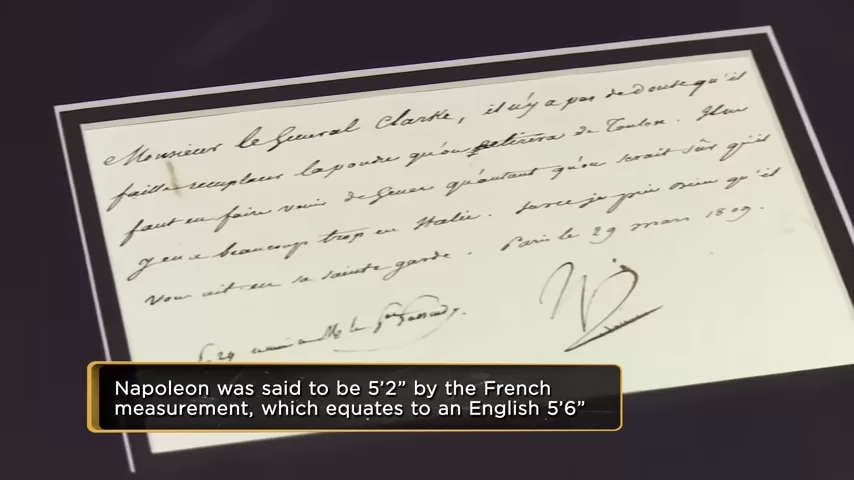 Monsieur le General Clarke, il n'y a pas de doute qu'il
faille remplacer la poudre qu'on retirera de Toulon. Il ne
faut en faire venir de Genes qu'autant qu'on serait sûr qu'il
y en a beaucoup trop en Italie. Surce je prie Dieu qu'il
vous ait en sa sainte garde. Paris le 29 mars 1809.
Napoleon was said to be 5’2” by the French
measurement, which equates to an English 5’6”